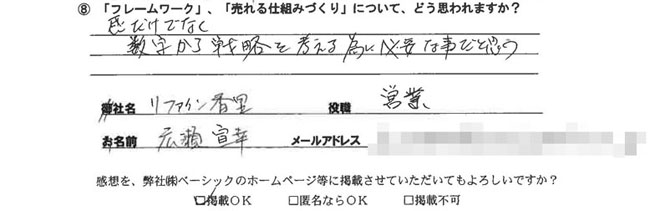 ⑧「フレームワーク」、「売れる仕組みづくり」について、どう思われますか?
感だけでなく
数字から戦略を考える為に必要な事だと思う
御社名 リファイン香里 役職 営業
お名前 広瀬 宣幸 メールアドレス
感想を、弊社㈱ベーシックのホームページ等に掲載させていただいてもよろしいですか?
☑掲載OK □匿名ならOK □掲載不可